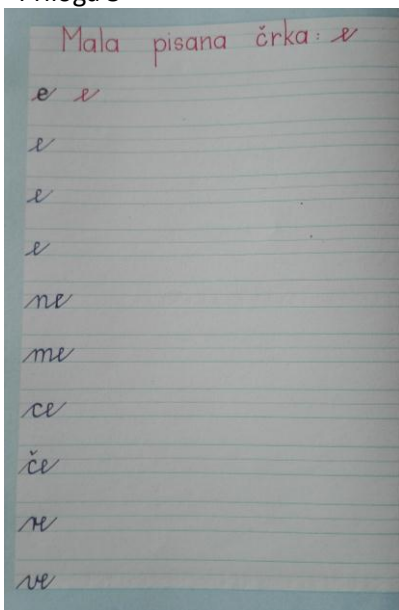 Mala pisana črka: e
e e
e
e
e
ne
me
ce
če
re
ve